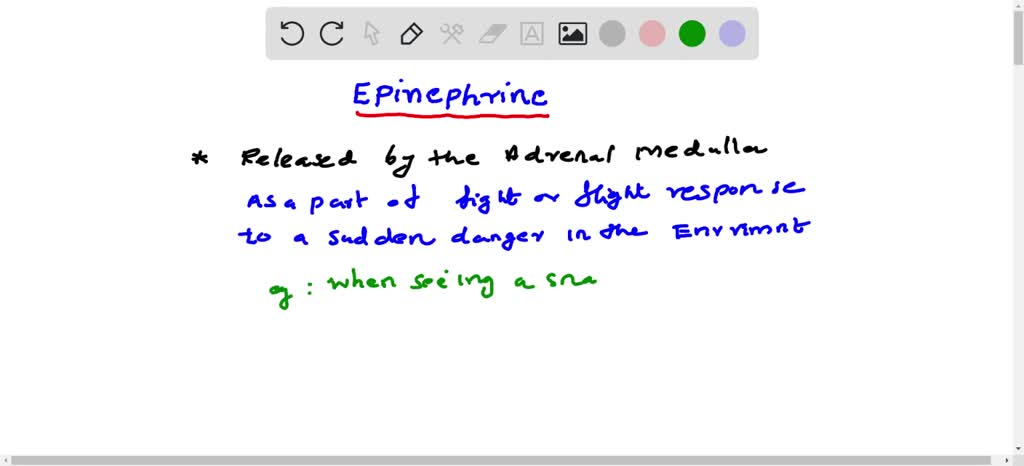 Epinephrine
* Released by the Adrenal medulla
As a part of fight or flight response
to a sudden danger in the Envrimnt
eg : when seeing a sna